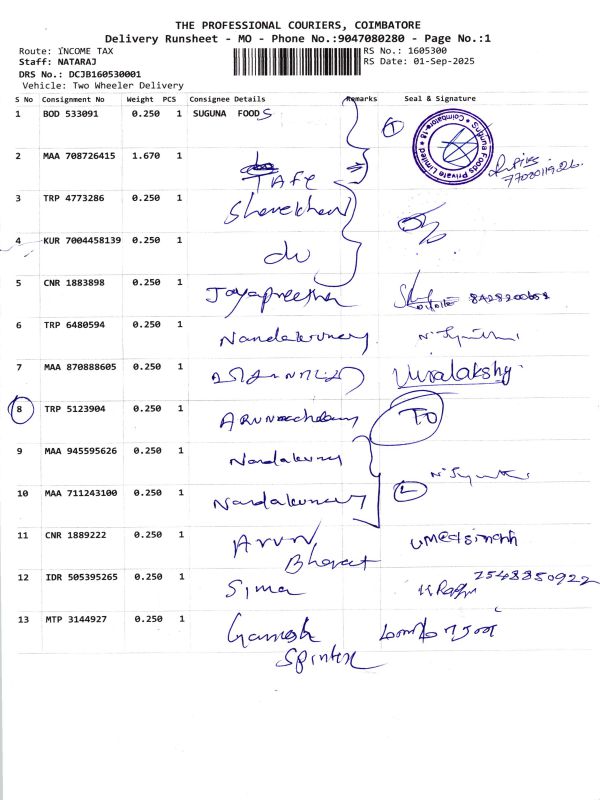 THE PROFESSIONAL COURIERS, COIMBATORE
Delivery Runsheet - MO - Phone No.:9047080280 - Page No.:1
Route: INCOME TAX RS No.: 1605300
Staff: NATARAJ RS Date: 01-Sep-2025
DRS No.: DCJB160530001
Vehicle: Two Wheeler Delivery
S No Consignment No Weight PCS Consignee Details Remarks Seal & Signature
1 BOD 533091 0.250 1 SUGUNA FOODS
Suguna Foods Private Limited * Coimbatore-18 *
2 MAA 708726415 1.670 1 TAFE
3 TRP 4773286 0.250 1 Sharekhan
4 KUR 7004458139 0.250 1 do
5 CNR 1883898 0.250 1 Jayapreetha
6 TRP 6480594 0.250 1 Nandakumar
7 MAA 870888605 0.250 1
8 TRP 5123904 0.250 1 TO
9 MAA 945595626 0.250 1 Nandakumar
10 MAA 711243100 0.250 1 Nandakumar
11 CNR 1889222 0.250 1 Arun umedsinghh
Bharat
12 IDR 505395265 0.250 1 Sima 7548850922
13 MTP 3144927 0.250 1 Ganesh
Spintex